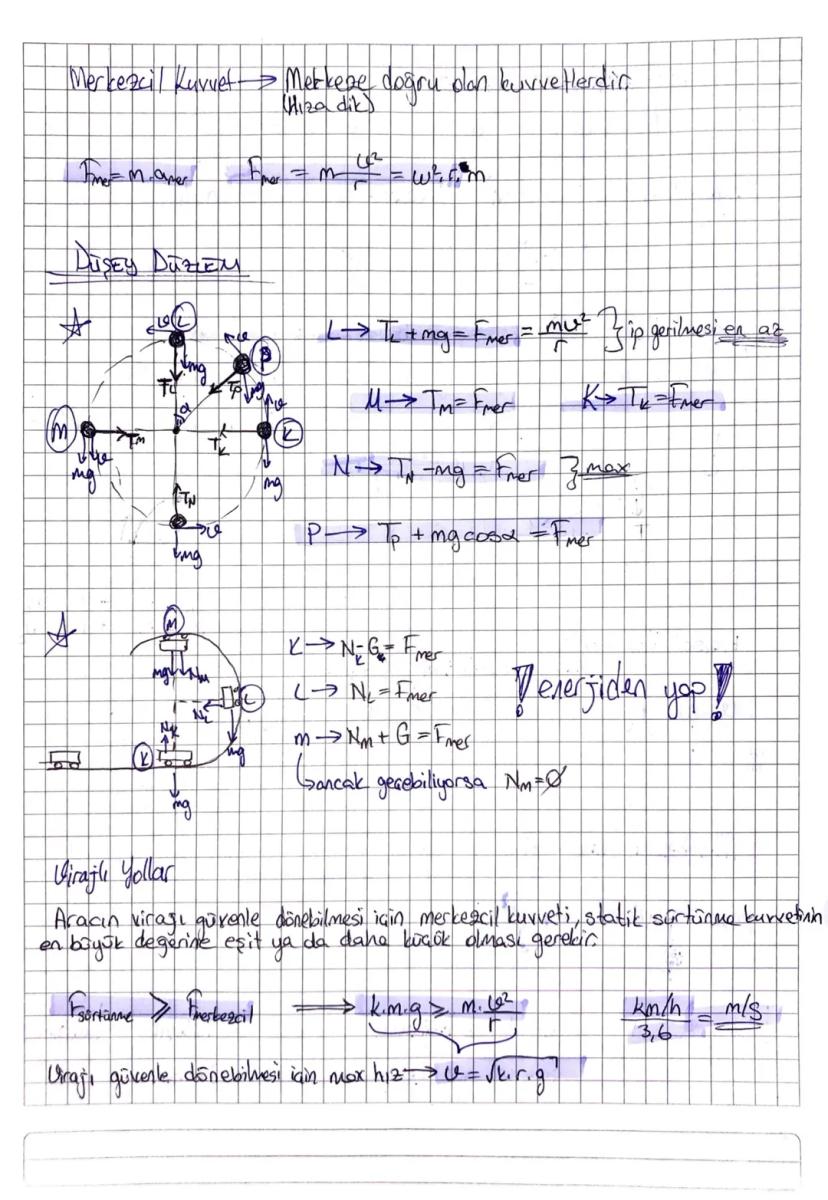 Merkezcil Kuvvet → Merkeze doğru olan kuvvetlerdir.
(Hıza dik)
Fmer = m.amer Fmer = m v²/r = w².r.m
DÜŞEY DÜZLEM
L → TL + mg = Fmer = mv²/r } ip gerilmesi en az
M → TM = Fmer K → TK = Fmer
N → TN - mg = Fmer } max
P → Tp + mg cosα = Fmer
v L
v
mg P
TL Tp mg v
α
M Tm TK K
v
mg mg
TN
v
mg
K → NK - G = Fmer
L → NL = Fmer
m → Nm + G = Fmer
ancak geçebiliyorsa Nm = Ø
! enerjiden yap !
M
mg Nm
NL L
NK mg
K
mg
Virajlı Yollar
Aracın virajı güvenle dönebilmesi için merkezcil kuvveti, statik sürtünme kuvvetinin
en büyük değerine eşit ya da daha küçük olması gerekir.
Fsürtünme ⩾ Fmerkezcil ⟹ k.m.g ⩾ m. v²/r km/h / 3,6 = m/s
Virajı güvenle dönebilmesi için max hız → v = √k.r.g